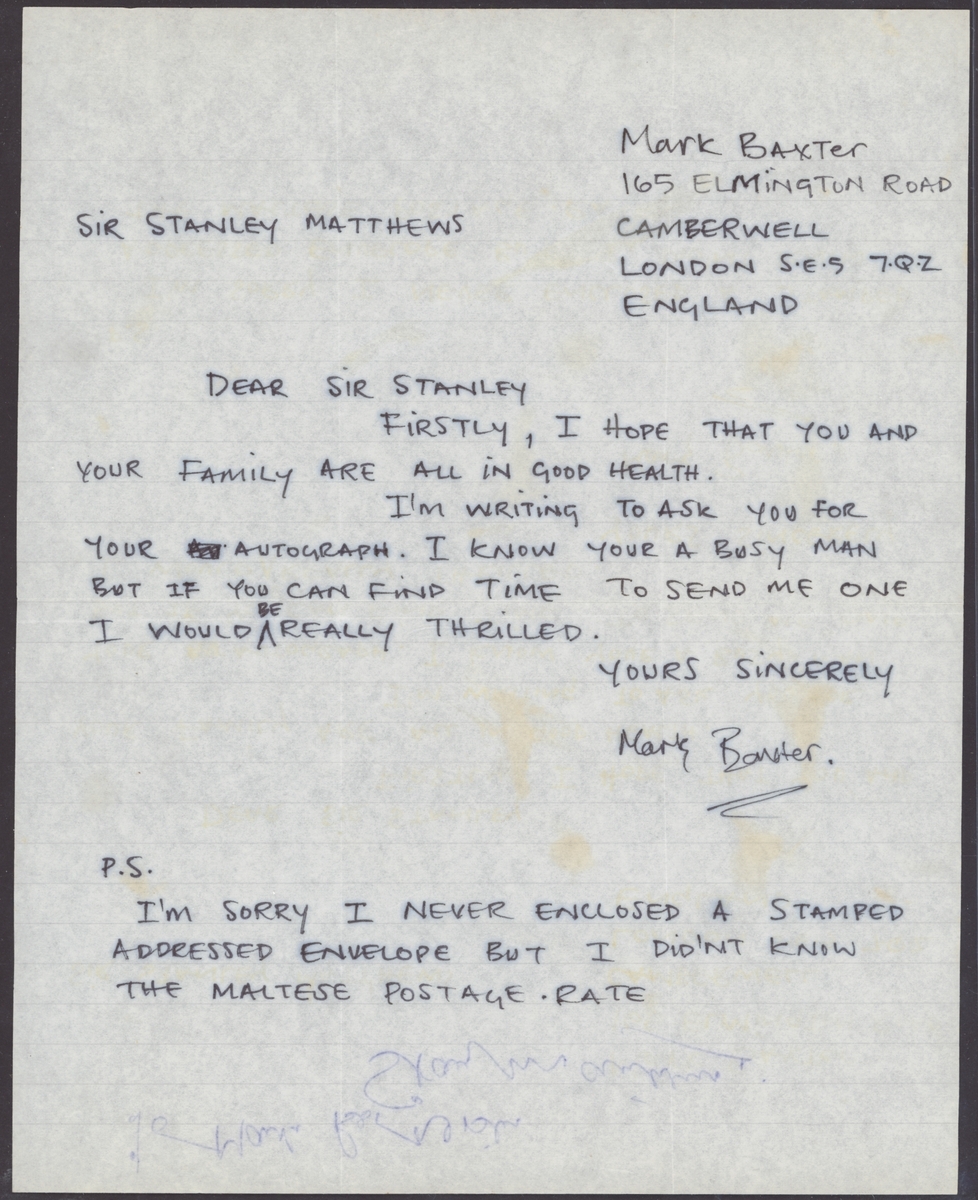 Mark Baxter
165 ELMINGTON ROAD
SIR STANLEY MATTHEWS
CAMBERWELL
LONDON S.E.5 7.Q.Z
ENGLAND
DEAR SIR STANLEY
FIRSTLY, I HOPE THAT YOU AND
YOUR FAMILY ARE ALL IN GOOD HEALTH.
I'M WRITING TO ASK YOU FOR
YOUR AUTOGRAPH. I KNOW YOUR A BUSY MAN
BUT IF YOU CAN FIND TIME TO SEND ME ONE
I WOULD BE REALLY THRILLED.
YOURS SINCERELY
Mark Baxter.
P.S.
I'M SORRY I NEVER ENCLOSED A STAMPED
ADDRESSED ENVELOPE BUT I DID'NT KNOW
THE MALTESE POSTAGE. RATE